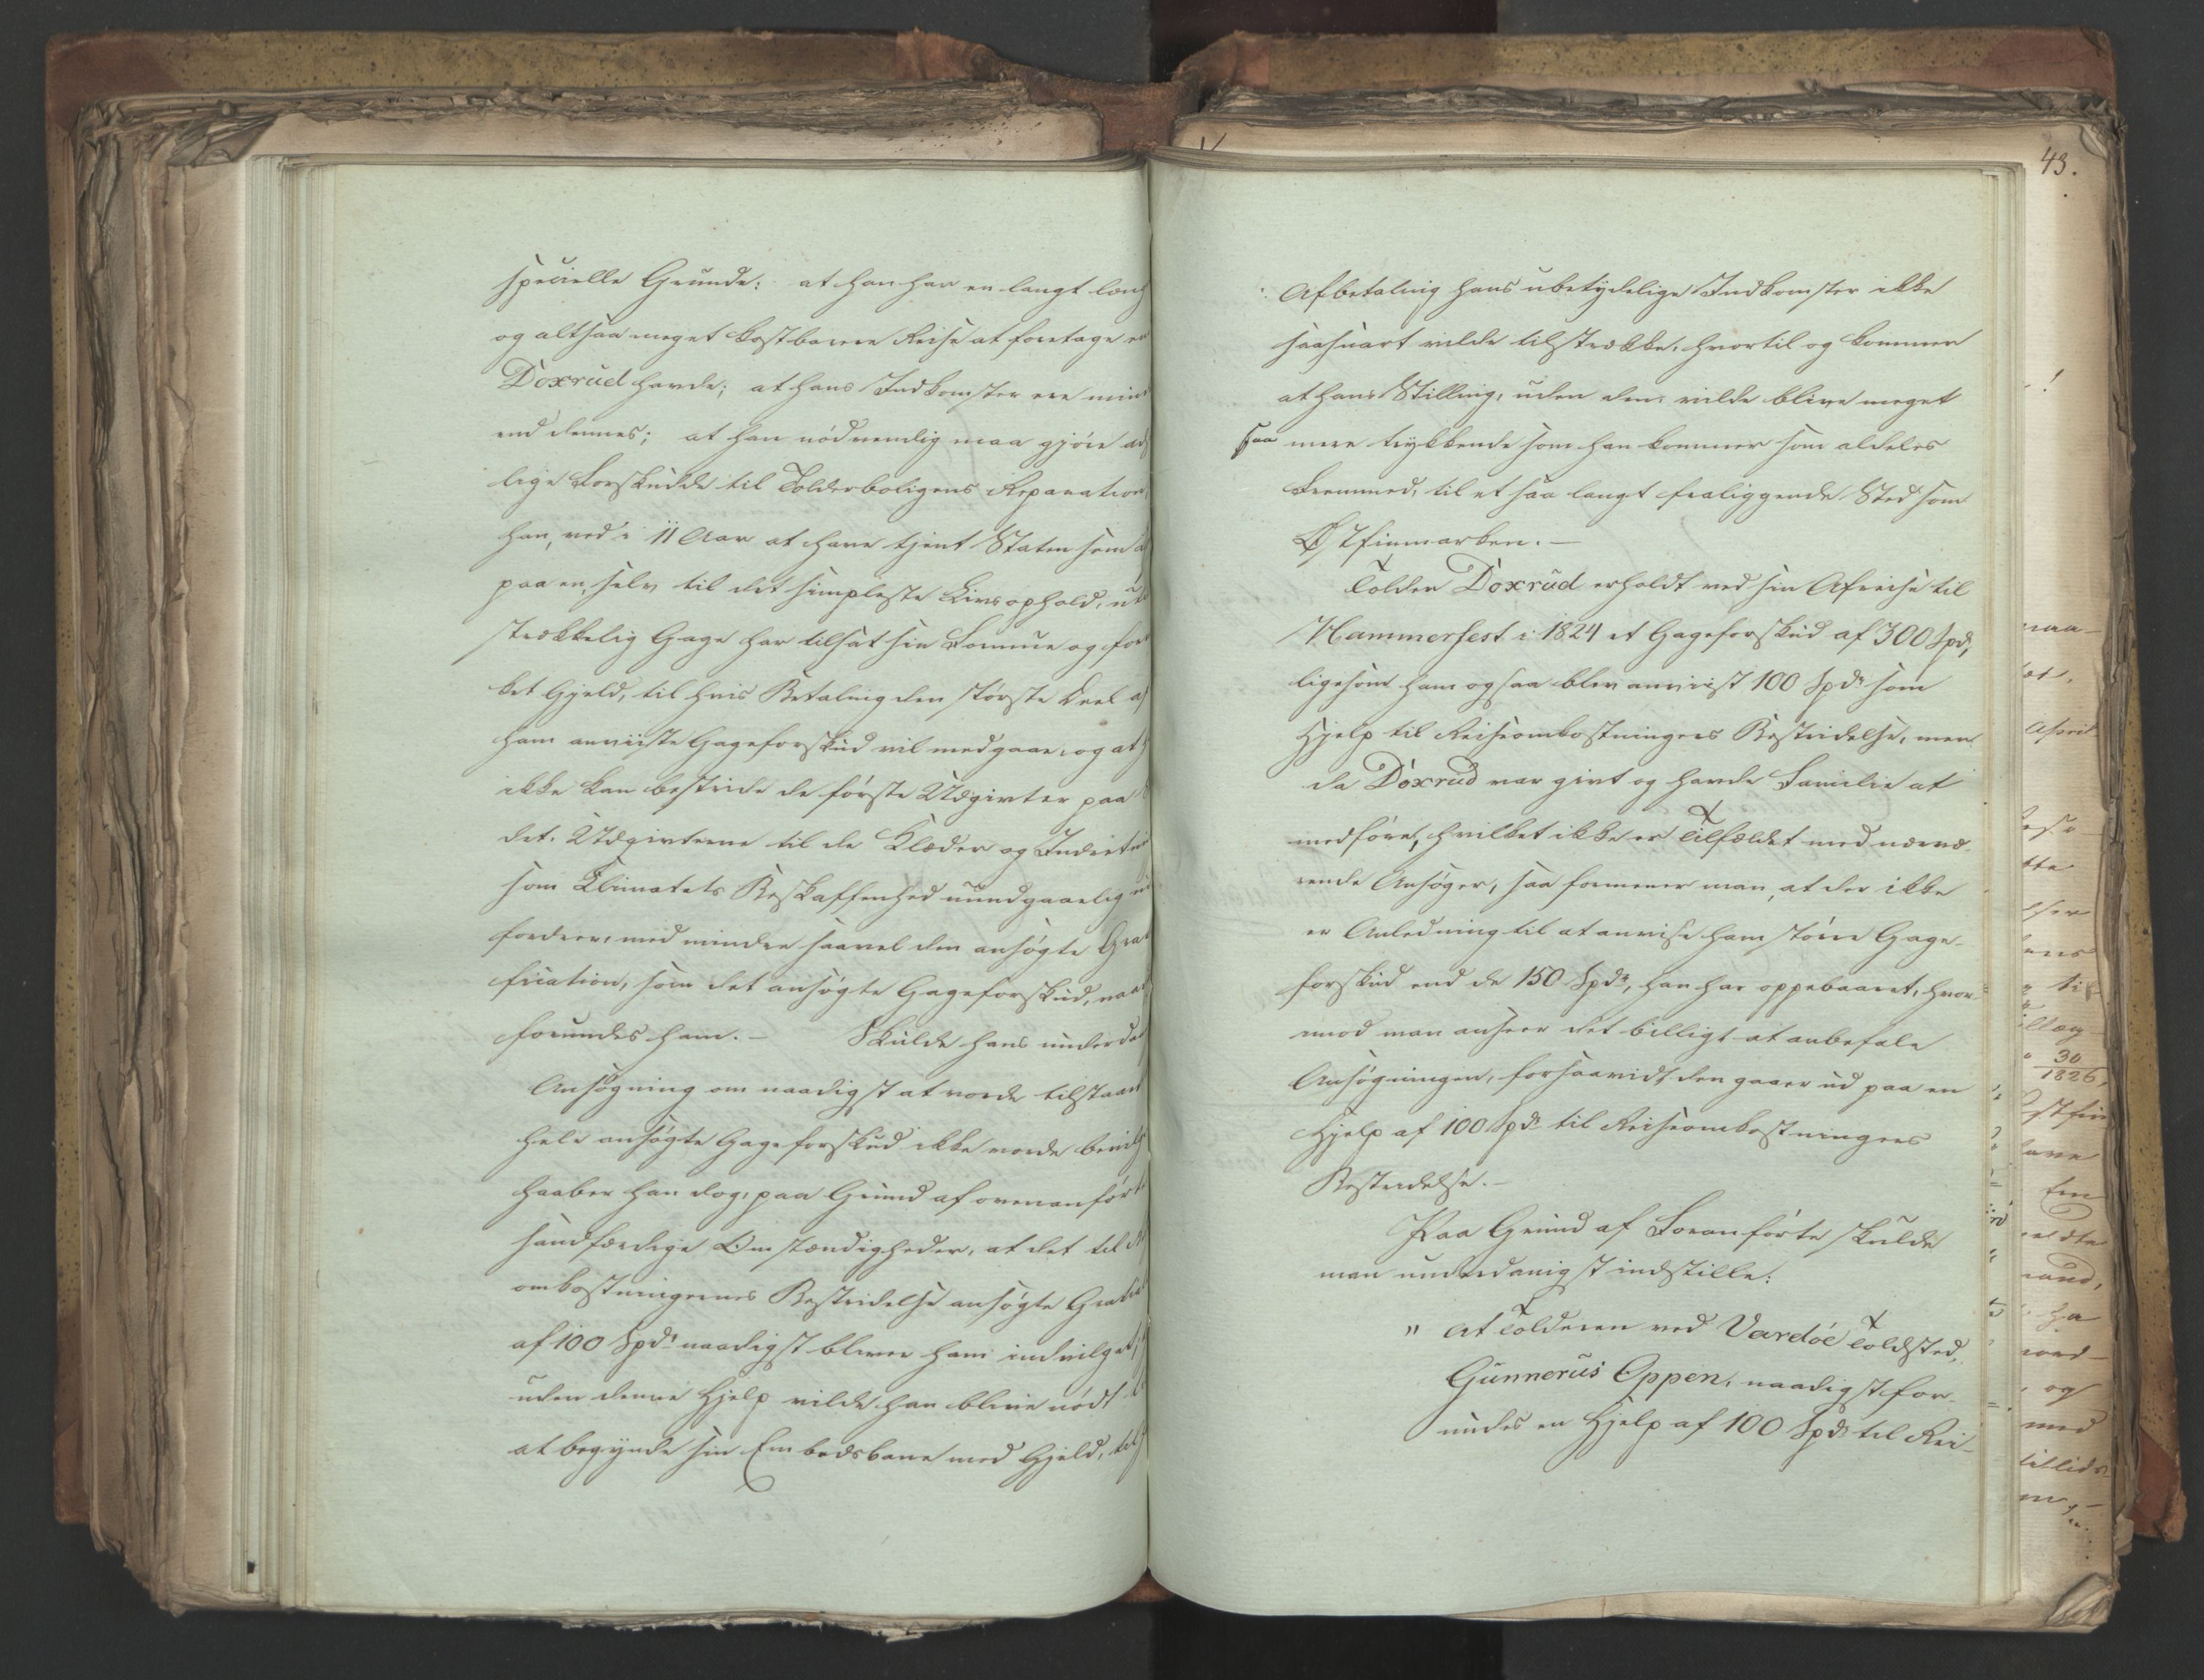 specielle Grunde: at han har en langt læng
og altsaa meget kostbarere Reise at foretage en
Doxrud havde; at hans Indkomster ere mind
end dennes; at han nödvendig maa gjöre
lige Forskudde til Tolderboligens Reparation,
han, ved i 11 Aar at have tjent Staten som
paa en, selv til det simpleste Livsophold, u
strækkelig Gage har tilsat sin Formue og for
ket Gjeld, til hvis Betaling den störste Deel af
ham anviiste Gageforskud vil medgaae, og at
ikke kan bestride de förste Udgivter paa
det. Udgivterne til de Klæder og Indretni
som Climatets Beskaffenhed uundgaaelig
fordrer, med mindre saavel den ansögte Grat
fication, som det ansögte Gageforskud, naad
forundes ham. – Skulde hans underda
Ansögning om naadigst at vorde tilstaaet
hele ansögte Gageforskud ikke vorde bevilg
haaber han dog, paa Grund af ovenanfört
sandfærdige Omstændigheder, at det til
omkostningernes Bestridelse ansögte Grati
af 100 Spdr naadigst bliver ham indvilget,
uden denne Hjelp vilde han blive nödt
at begynde sin Embedsbane med Gjeld, til
43.
Afbetaling hans ubetydelige Indkomster ikke
saasnart vilde tilstrække, hvortil og kommer
at hans Stilling, uden den, vilde blive meget
saa mere trykkende som han kommer som aldeles
Fremmed, til et saa langt fraliggende Sted som
Östfinmarken. –
Tolder Doxrud erholdt ved sin Afreise til
Hammerfest i 1824 et Gageforskud af 300 Spdr,
ligesom ham ogsaa blev anviist 100 Spdr som
Hjelp til Reiseomkostningers Bestridelse, men
da Doxrud var givt og havde Familie at
medföre, hvilket ikke er Tilfældet med nærvæ-
rende Ansöger, saa formener man, at der ikke
er Anledning til at anvise ham större Gage-
forskud end de 150 Spdr, han har oppebaaret, hvor-
imod man anseer det billigt at anbefale
Ansögningen, forsaavidt den gaaer ud paa en
Hjelp af 100 Spdr til Reiseomkostningers
Bestridelse. –
Paa Grund af Foranförte skulde
man underdanigst indstille:
" At Tolderen ved Vardöe Toldsted,
Gunnerus Oppen, naadigst for-
undes en Hjelp af 100 Spdr til Rei-